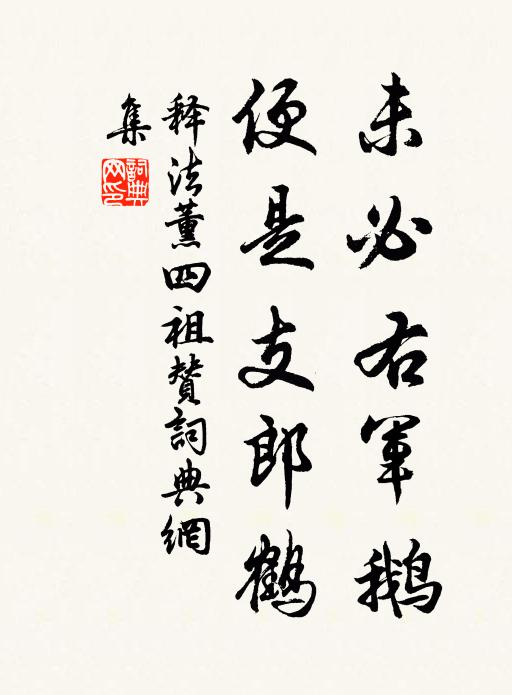 未必右軍鵝
便是支郎鶴
释法薰四祖赞詞典網
集
詞典
网印